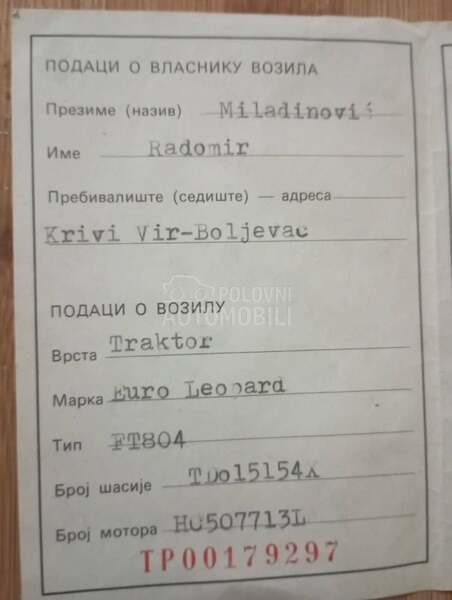 ПОДАЦИ О ВЛАСНИКУ ВОЗИЛА
Презиме (назив) Miladinović
Име Radomir
Пребивалиште (седиште) — адреса
Krivi Vir-Boljevac
POLOVNI
AUTOMOBILI
ПОДАЦИ О ВОЗИЛУ
Врста Traktor
Марка Euro Leopard
Тип FT804
Број шасије
Број мотора HC507713L
TP00179297